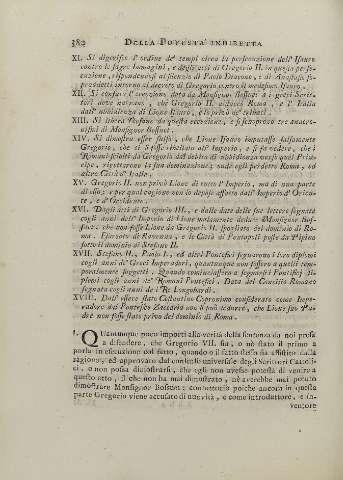 382 DELLA POTESTA' INDIRETTA
XI. Si digerisce l'ordine de' tempi circa la persecuzione dell'Isauro
contro le sagre Immagini, e degli atti di Gregorio II. in questa perse-
cuzione, rispondendosi al silenzio di Paolo Diacono, e di Anastasio so-
pra detti intorno al decreto di Gregorio contro il medesimo Isauro.
XII. Si confuta l'eccezione data da Monsignor Bossuet a i greci Scrit-
tori dove narrano, che Gregorio II. distolse Roma, e l' Italia
dall' ubbidienza di Lione Isauro, e i sprivò de' tributi.
XIII. Si libera Teofane da questa eccezione, e si scuoprono tre anacro-
nismi di Monsignor Bossuet.
XIV. Si dimostra esser falso, che Lione Isauro imputasse falsamente
Gregorio, che si fosse ribellato all' Imperio, e si fa vedere, che i
Romani sciolti da Gregorio dal debito di ubbidienza verso quel Prin-
cipe, rigettarono la sua dominazione, onde egli perdette Roma, ed
altre Città d' Italia.
XV. Gregorio II. non privò Lione di tutto l' Imperio, ma di una parte
di esso; e per qual cagione non lo depose affatto dall' Imperio d' Orien-
te, e d' Occidente.
XVI. Dagli atti di Gregorio III., e dalle date delle sue lettere segnate
cogli anni dell' Imperio di Lione malamente deduce Monsignor Bos-
suet, che non fosse Lione da Gregorio II. spogliato del dominio di Ro-
ma. Esarcato di Ravenna, e le Città di Pentapoli poste da Pipino
sotto il dominio di Stefano II.
XVII. Stefano II., Paolo I., ed altri Pontefici segnarono i loro diplomi
cogli anni de' Greci Imperadori, quantunque non fossero a quelli tem-
poralmente soggetti. Quando cominciassero a segnarsi i Pontificj di-
plomi cogli anni de' Romani Pontefici. Data del Concilio Romano
segnata cogli anni de i Re Longobardi.
XVIII. Dall' essere stato Costantino Copronimo considerato come Impe-
radore dal Pontefice Zaccaria non si può dedurre, che Lione suo Pa-
dre non fosse stato privo del dominio di Roma.
I. QUantunque poco importi alla verità della sentenza da noi presa
a difendere, che Gregorio VII. sia, o nò stato il primo a
porla in esecuzione col fatto, quando o il fatto stesso sia assistito dalla
ragione, ed approvato dal consenso universale degli Scrittori Cattoli-
ci, e non possa dimostrarsi, che egli non avesse potestà di venire a
questo atto, il che non ha mai dimostrato, nè avrebbe mai potuto
dimostrare Monsignor Bossuet: contuttociò poichè ancora in questa
parte Gregorio viene accusato di novità, e come introduttore, e in-
ventore